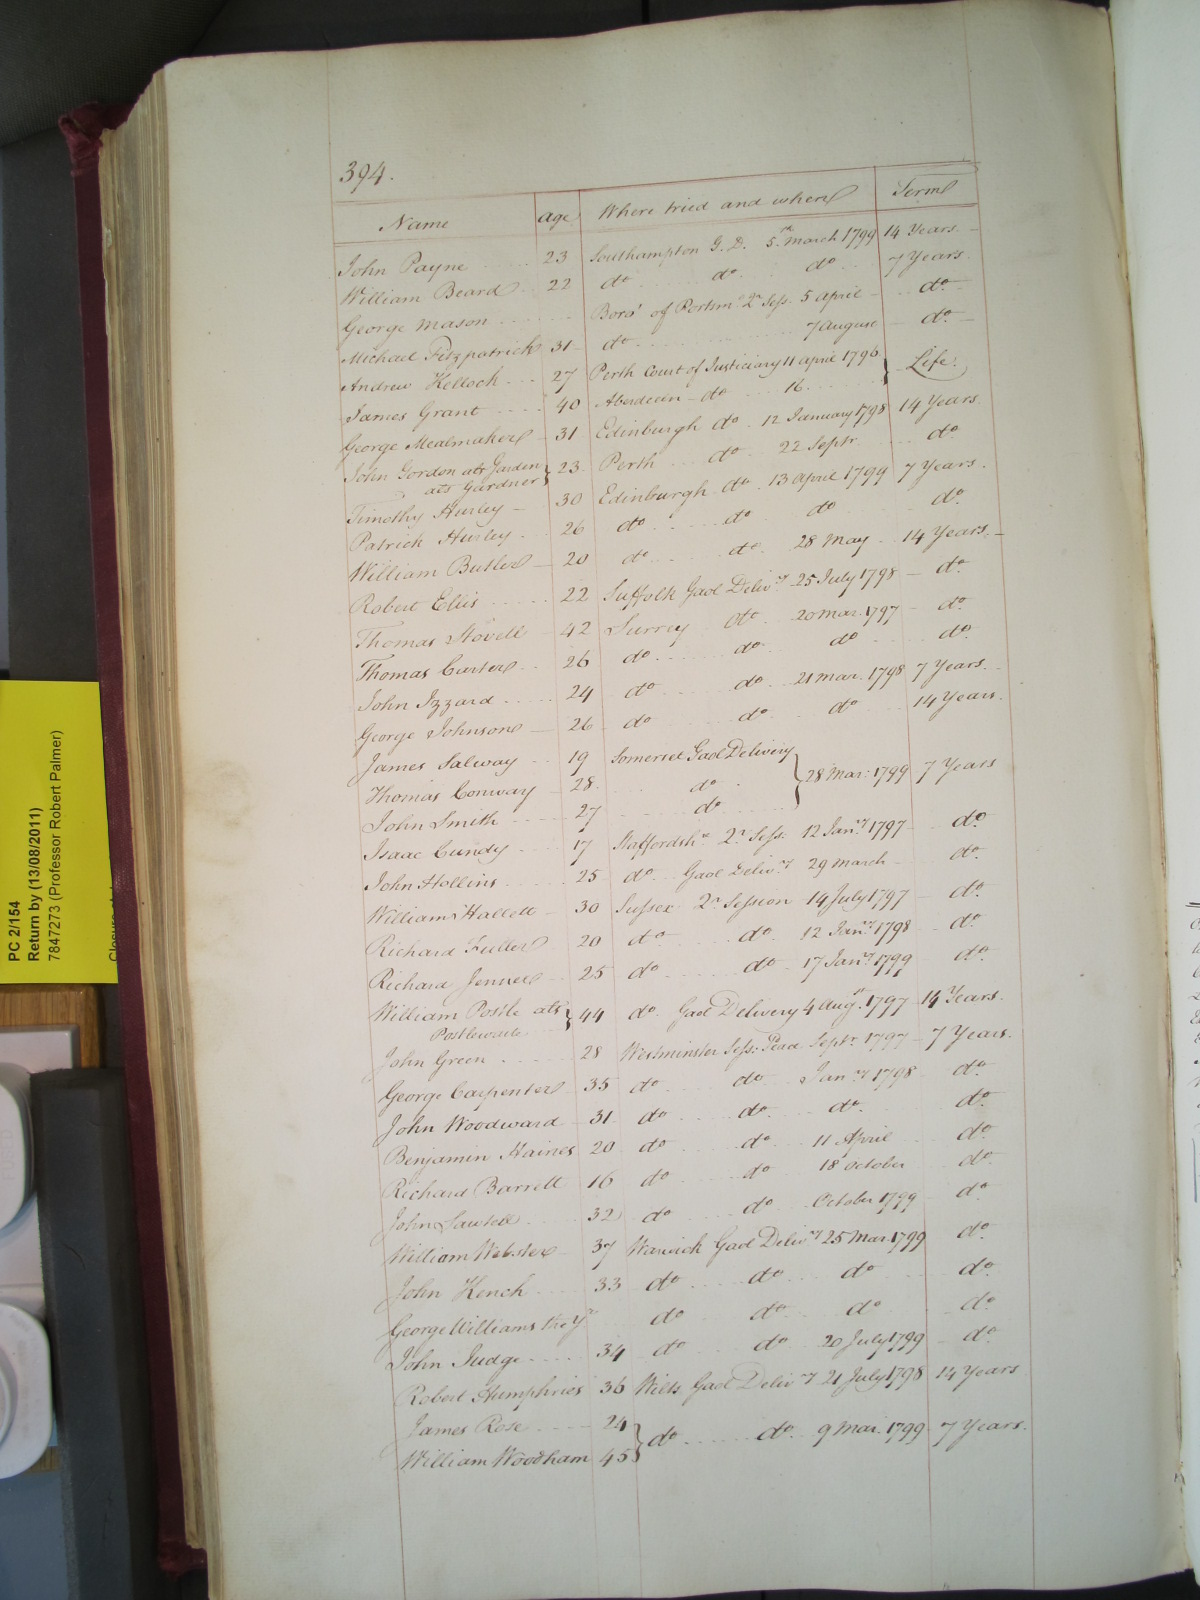 394.
Name Age Where tried and where Term
John Payne 23 Southampton G. D. 5th March 1799 14 Years
William Beard 22 do do do 7 Years
George Mason Boro' of Portsmo 2r Sess. 5 April do
Michael Fitzpatrick 31 do 7 August do
Andrew Kelloch 27 Perth Court of Justiciary 11 April 1796 } Life
James Grant 40 Aberdeen do 16
George Mealmaker 31 Edinburgh do 12 January 1798 14 Years
John Gordon ats Jarden } 23 Perth do 22 Septr do
ats Gardner
Timothy Hurley 30 Edinburgh do 13 April 1799 7 Years
Patrick Hurley 26 do do do do
William Butler 20 do do 28 May 14 Years
Robert Ellis 22 Suffolk Gaol Delivry 25 July 1798 do
Thomas Stovell 42 Surrey do 20 Mar. 1797 do
Thomas Carter 26 do do do do
John Izzard 24 do do 21 Mar. 1798 7 Years
George Johnson 26 do do do 14 Years
James Salway 19 Somerset Gaol Delivery
Thomas Conway 28 do } 28 Mar: 1799 7 Years
John Smith 27 do
Isaac Cundy 17 Staffordshe 2r Sess: 12 Janry 1797 do
John Hollins 25 do Gaol Delivry 29 March do
William Hallett 30 Sussex 2r Session 14 July 1797 do
Richard Fuller 20 do do 12 Janry 1798 do
Richard Jenner 25 do do 17 Janry 1799 do
William Postle ats } 44 do Gaol Delivery 4 Augst 1797 14 Years
Postlewaite
John Green 28 Westminster Sess: Peace Septr 1797 7 Years
George Carpenter 35 do do Janry 1798 do
John Woodward 31 do do do do
Benjamin Haines 20 do do 11 April do
Richard Barrett 16 do do 18 October do
John Sawtell 32 do do October 1799 do
William Webster 37 Warwick Gaol Delivry 25 Mar. 1799 do
John Kench 33 do do do do
George Williams the Yr do do do do
John Judge 34 do do 20 July 1799 do
Robert Humphries 36 Wilts Gaol Delivry 21 July 1798 14 Years
James Rose 24 } do do 9 Mar. 1799 7 Years
William Woodham 45
PC 2/154
Return by (13/08/2011)
7847273 (Professor Robert Palmer)